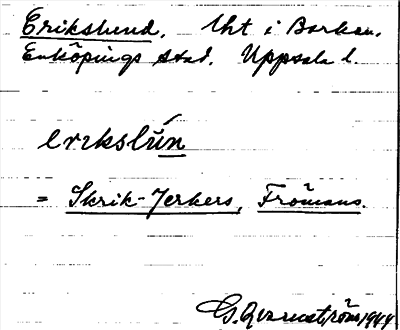 Erikslund. Lht i Barkan.
Enköpings stad. Uppsala l.
erikslún
= Skrik-Jerkers, Frömans.
G. Qvarnström 1944